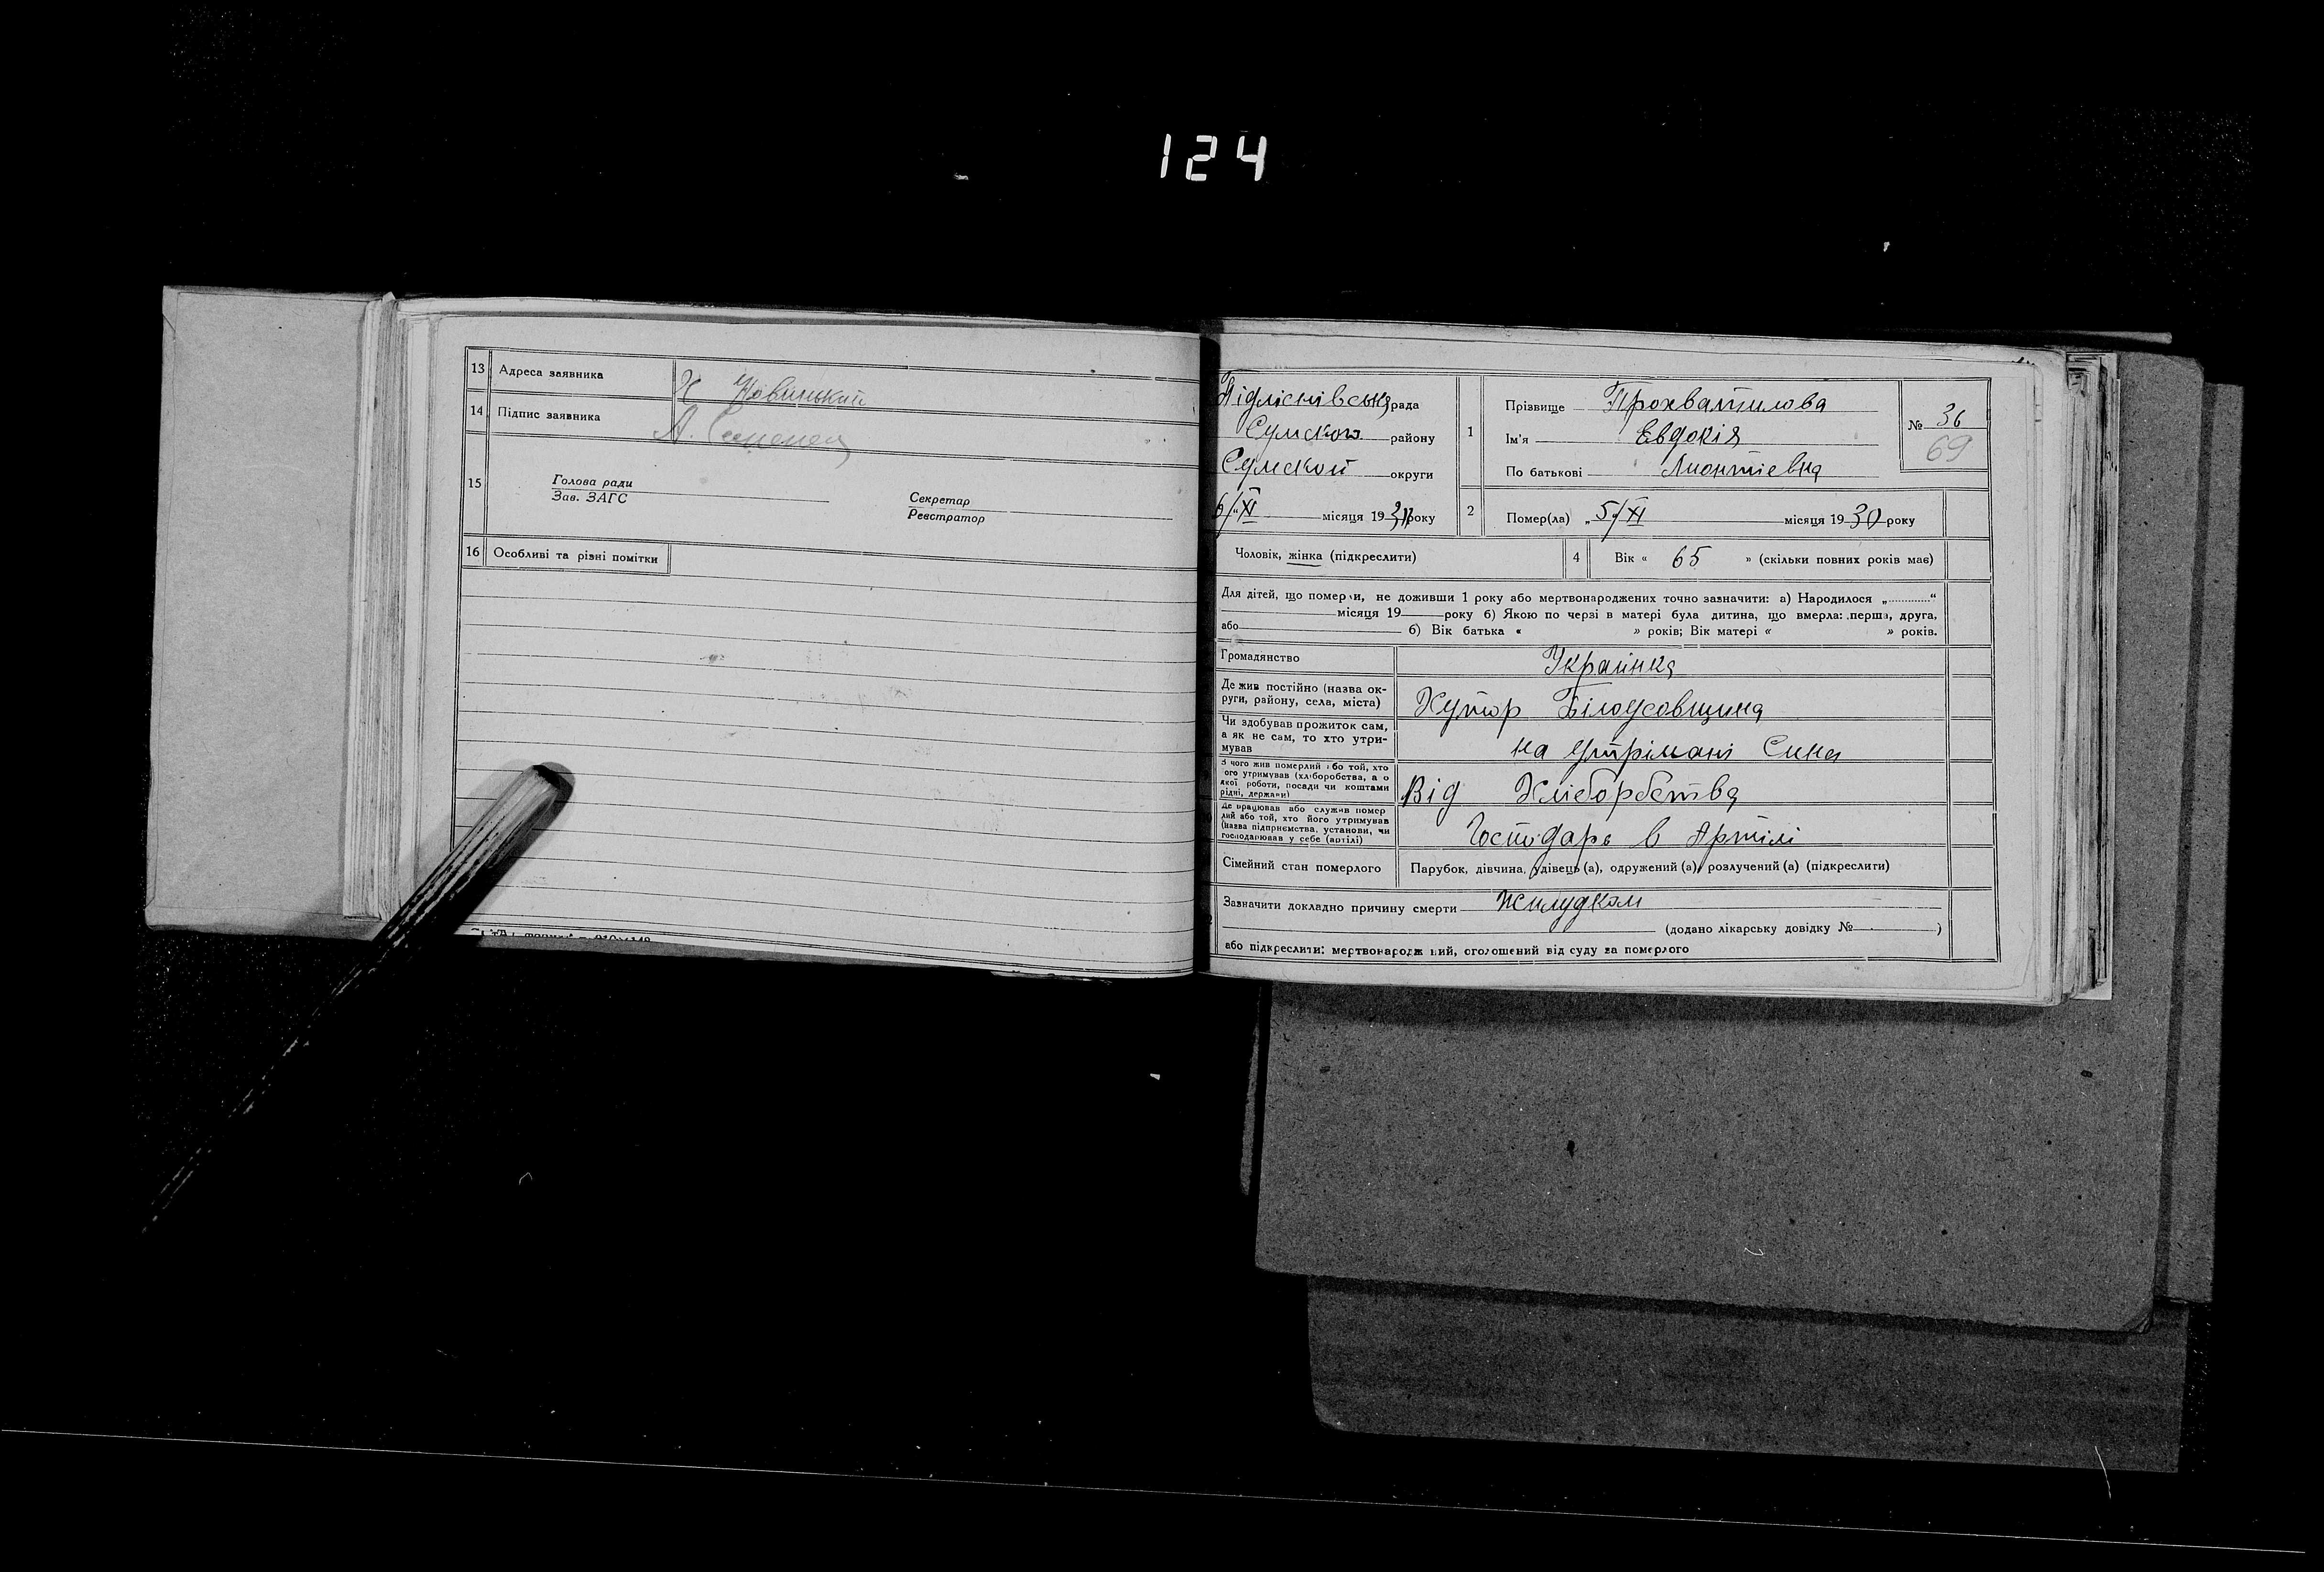 124
13 Адреса заявника Х Новинький
14 Підпис заявника А.
15 Голова ради
Зав. ЗАГС
Секретар
Реєстратор
16 Особливі та різні помітки
Підліснівська рада
Сумского району
Сумской округи
6/"XI місяця 1930 року
1 Прізвище Прохватилова
Ім'я Евдокія
По батькові Лионтіевна
№ 36
69
2 Помер(ла) „5/XI місяця 1930 року
Чоловік, жінка (підкреслити)
4 Вік « 65 » (скільки повних років має)
Для дітей, що померли, не доживши 1 року або мертвонароджених точно зазначити: а) Народилося „............“
місяця 19 року б) Якою по черзі в матері була дитина, що вмерла: перша, друга,
або б) Вік батька « » років; Вік матері « » років.
Громадянство Українка
Де жив постійно (назва ок-
руги, району, села, міста) Хутор Білоусовщина
Чи здобував прожиток сам,
а як не сам, то хто утри-
мував на утрімані Сина
З чого жив померлий або той, хто
його утримував (хліборобства, а о
якої роботи, посади чи коштами
рідні, держави) Від Хліборбства
Де працював або служив помер
лий або той, хто його утримував
(назва підприємства, установи, чи
господарював у себе (артілі) Господарь в Артілі
Сімейний стан померлого Парубок, дівчина, удівець (а), одружений (а), розлучений (а) (підкреслити)
Зазначити докладно причину смерти Жилудком
(додано лікарську довідку № )
або підкреслити: мертвонароджений, оголошений від суду за померлого